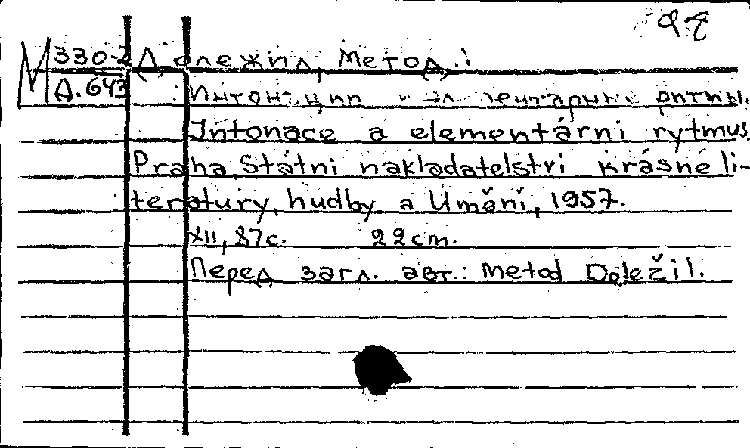 98
М 330-2 Долежил, Метод.:
Д.643 Интонации и элементарные ритмы.
Intonace a elementární rytmus
Praha, Státni nakladatelstvi krásne li-
teratury, hudby a Uměni, 1957.
XII, 87с. 22 cm.
Перед загл. авт.: Metod Doležil.